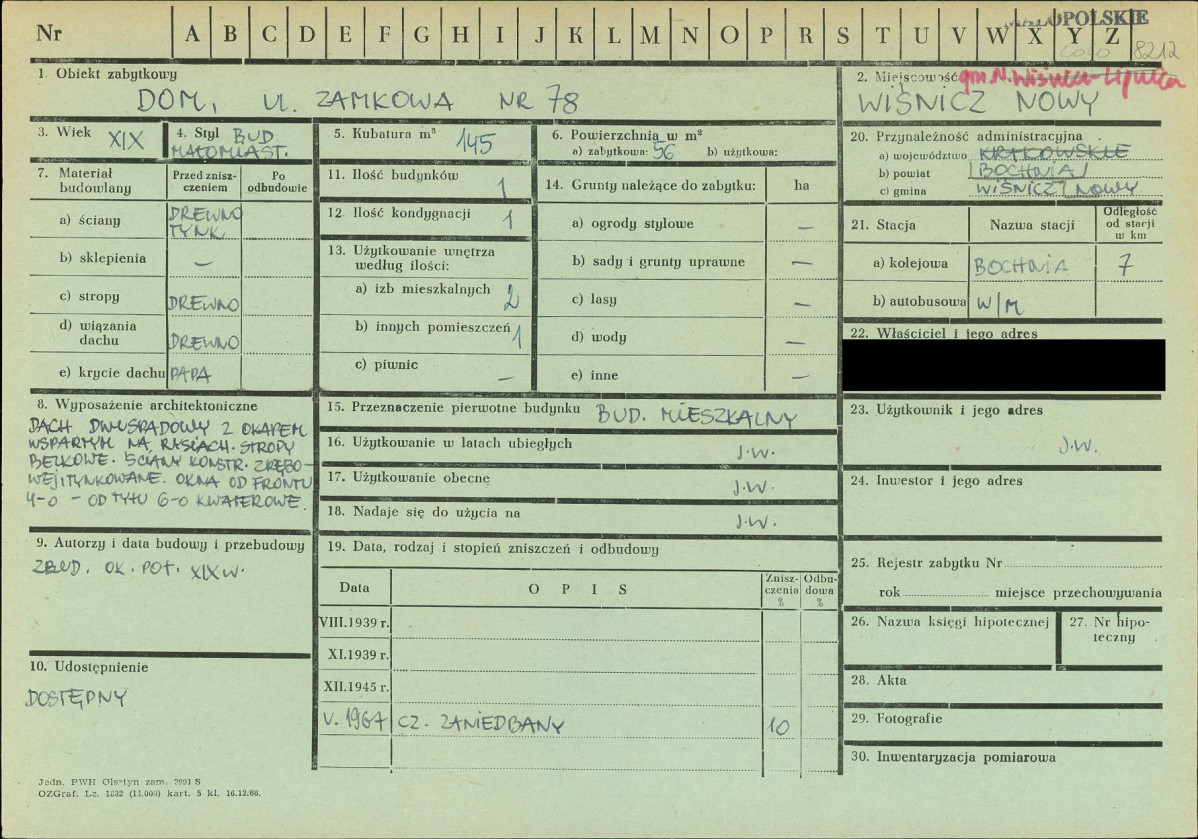 Nr A B C D E F G H I J K L M N O P R S T U V W X Y Z
OPOLSKIE
8212
1. Obiekt zabytkowy
DOM, UL. ZAMKOWA NR 78
2. Miejscowość gm. N. Wiśnicz
WIŚNICZ NOWY
3. Wiek XIX
4. Styl BUD
MAŁOMIAST.
5. Kubatura m³ 145
6. Powierzchnia w m²
a) zabytkowa: 56 b) użytkowa:
7. Materiał budowlany
Przed zniszczeniem
Po odbudowie
a) ściany DREWNO
TYNK
b) sklepienia —
c) stropy DREWNO
d) wiązania dachu DREWNO
e) krycie dachu PAPA
8. Wyposażenie architektoniczne
DACH DWUSPADOWY Z OKAPEM
WSPARTYM NA RYSIACH. STROPY
BELKOWE. ŚCIANY KONSTR. ZRĘBO-
WEJ, TYNKOWANE. OKNA OD FRONTU
4-O – OD TYŁU 6-O KWATEROWE.
9. Autorzy i data budowy i przebudowy
ZBUD. OK. POŁ. XIX W.
10. Udostępnienie
DOSTĘPNY
11. Ilość budynków 1
12. Ilość kondygnacji 1
13. Użytkowanie wnętrza
według ilości:
a) izb mieszkalnych 2
b) innych pomieszczeń 1
c) piwnic —
14. Grunty należące do zabytku: ha
a) ogrody stylowe —
b) sady i grunty uprawne —
c) lasy —
d) wody —
e) inne —
15. Przeznaczenie pierwotne budynku BUD. MIESZKALNY
16. Użytkowanie w latach ubiegłych J.W.
17. Użytkowanie obecne J.W.
18. Nadaje się do użycia na J.W.
19. Data, rodzaj i stopień zniszczeń i odbudowy
Data OPIS Zniszczenia % Odbudowa %
VIII.1939 r.
XI.1939 r.
XII.1945 r.
V. 1967 CZ. ZANIEDBANY 10
20. Przynależność administracyjna
a) województwo KRAKOWSKIE
b) powiat BOCHNIA
c) gmina WIŚNICZ NOWY
21. Stacja Nazwa stacji Odległość od stacji w km
a) kolejowa BOCHNIA 7
b) autobusowa W/M
22. Właściciel i jego adres
23. Użytkownik i jego adres
J.W.
24. Inwestor i jego adres
25. Rejestr zabytku Nr
rok miejsce przechowywania
26. Nazwa księgi hipotecznej
27. Nr hipoteczny
28. Akta
29. Fotografie
30. Inwentaryzacja pomiarowa
Jedn. PWH Olsztyn zam. 2991 S
OZGraf. Lz. 1832 (11.000) kart. 5 kl. 16.12.66.